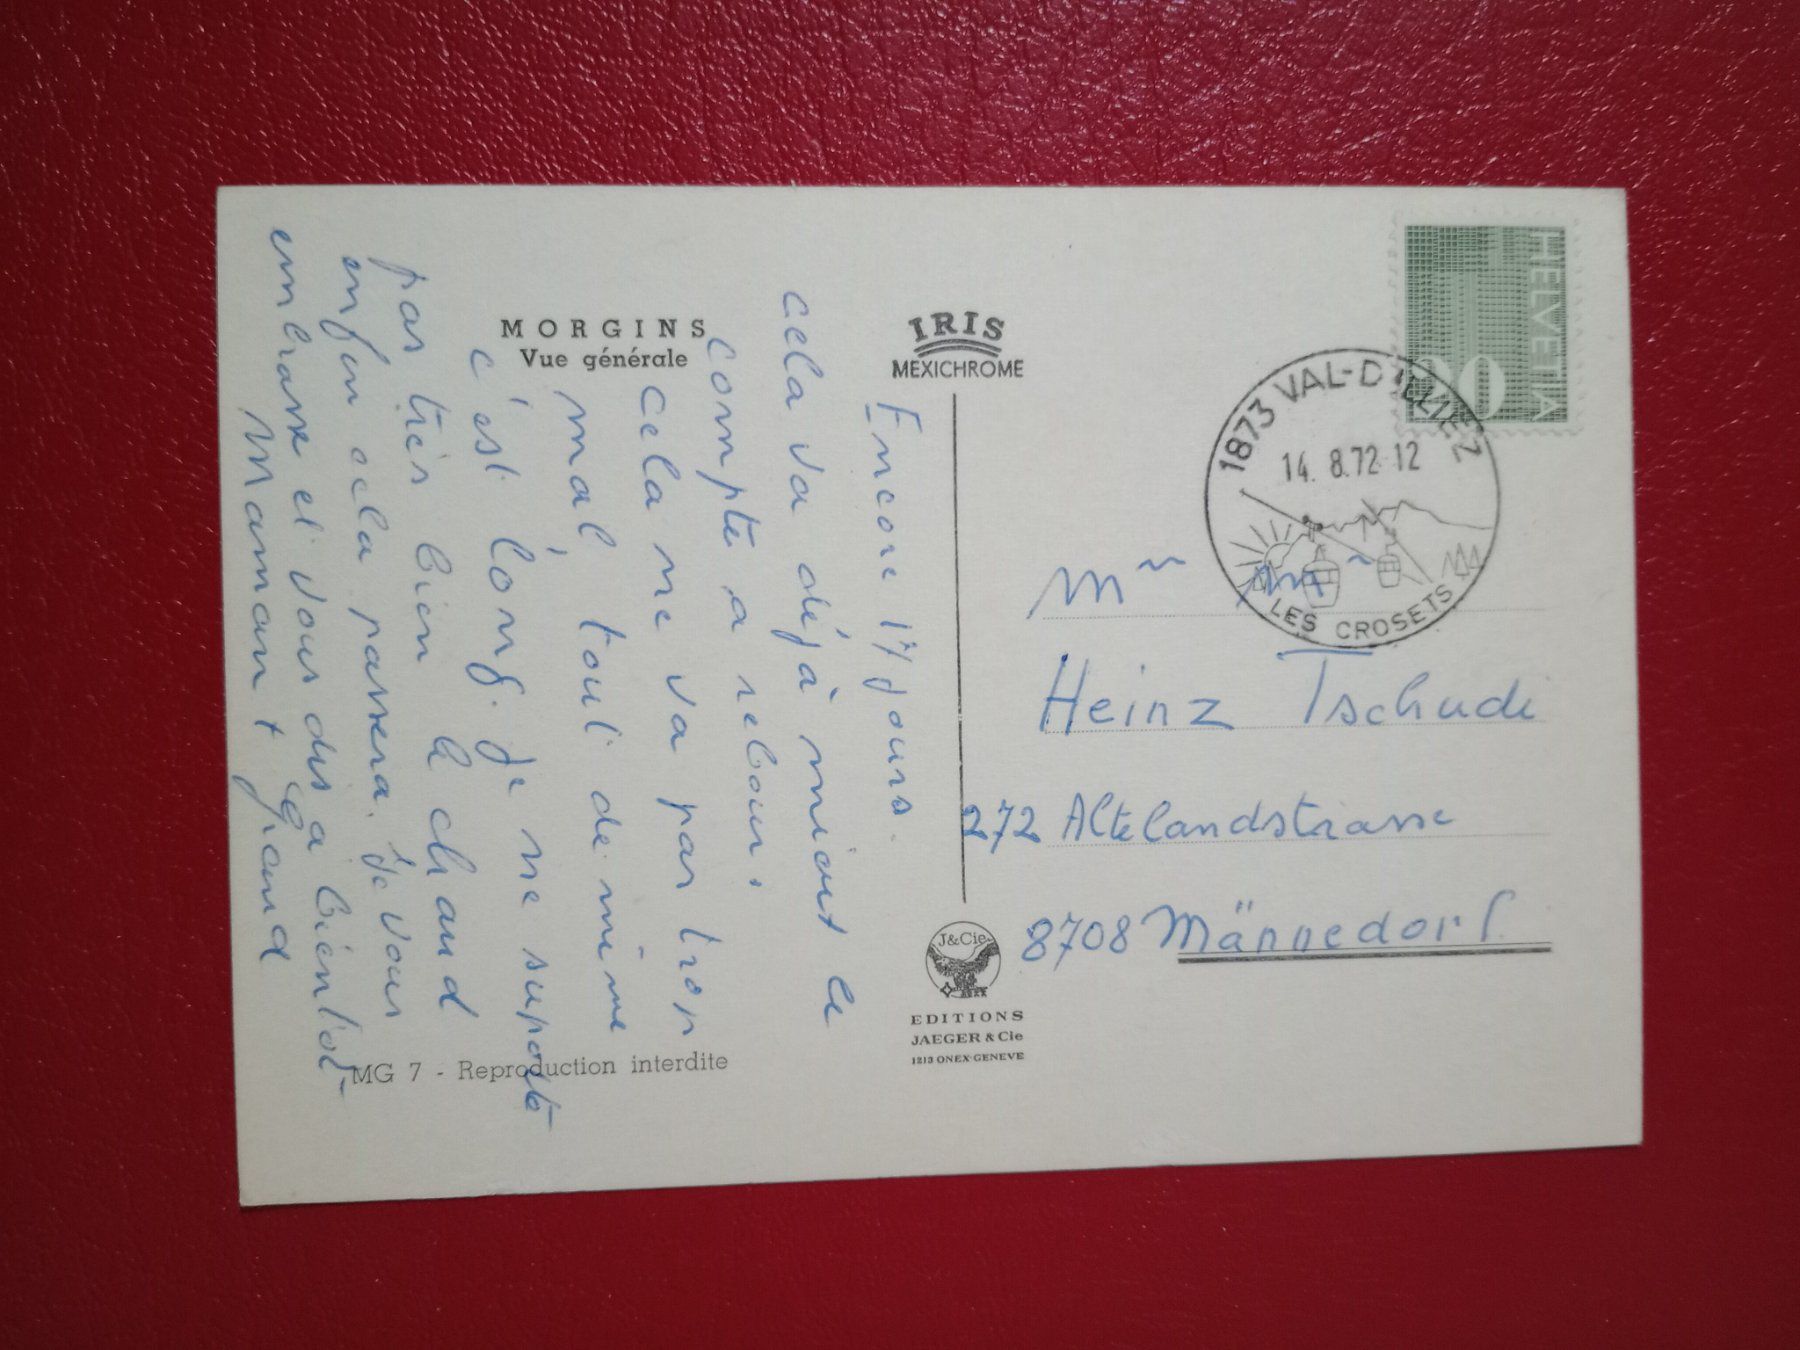 MORGINS
Vue générale
Encore 17 jours.
cela va déjà mieux le
compte a rebours,
cela ne va pas trop
mal tout de même
c'est long. je ne supporte
pas très bien le chaud
enfin cela passera. Je vous
embrasse et vous dis a bientot
Maman + Grand
MG 7 - Reproduction interdite
IRIS
MEXICHROME
J&Cie
EDITIONS
JAEGER & Cie
1213 ONEX-GENEVE
HELVETIA
20
1873 VAL-D'ILLIEZ
14. 8.72-12
LES CROSETS
Heinz Tschudi
272 Altelandstrasse
8708 Männedorf.